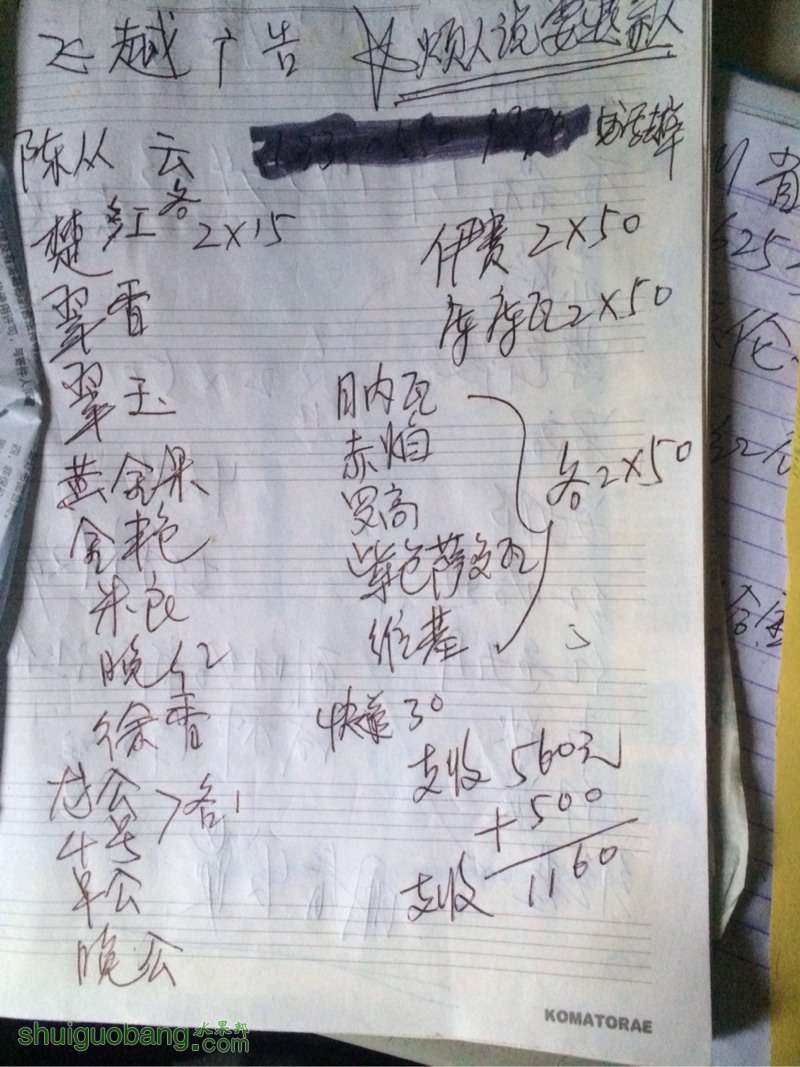 飞越广告 烦人说要退款
陈从云 电话去掉
楚红各2×15
伊赛 2×50
翠香
库库瓦2×50
翠玉
日内瓦
黄金果
赤焰
各2×50
金艳
罗高
米良
紫色萨多瓦
晚红
维基
徐香
快递30
龙公
支收 560元
>各1
4号
+500
早公
支收 1160
晚公
KOMATORAE
水果邦
shuiguobang.com